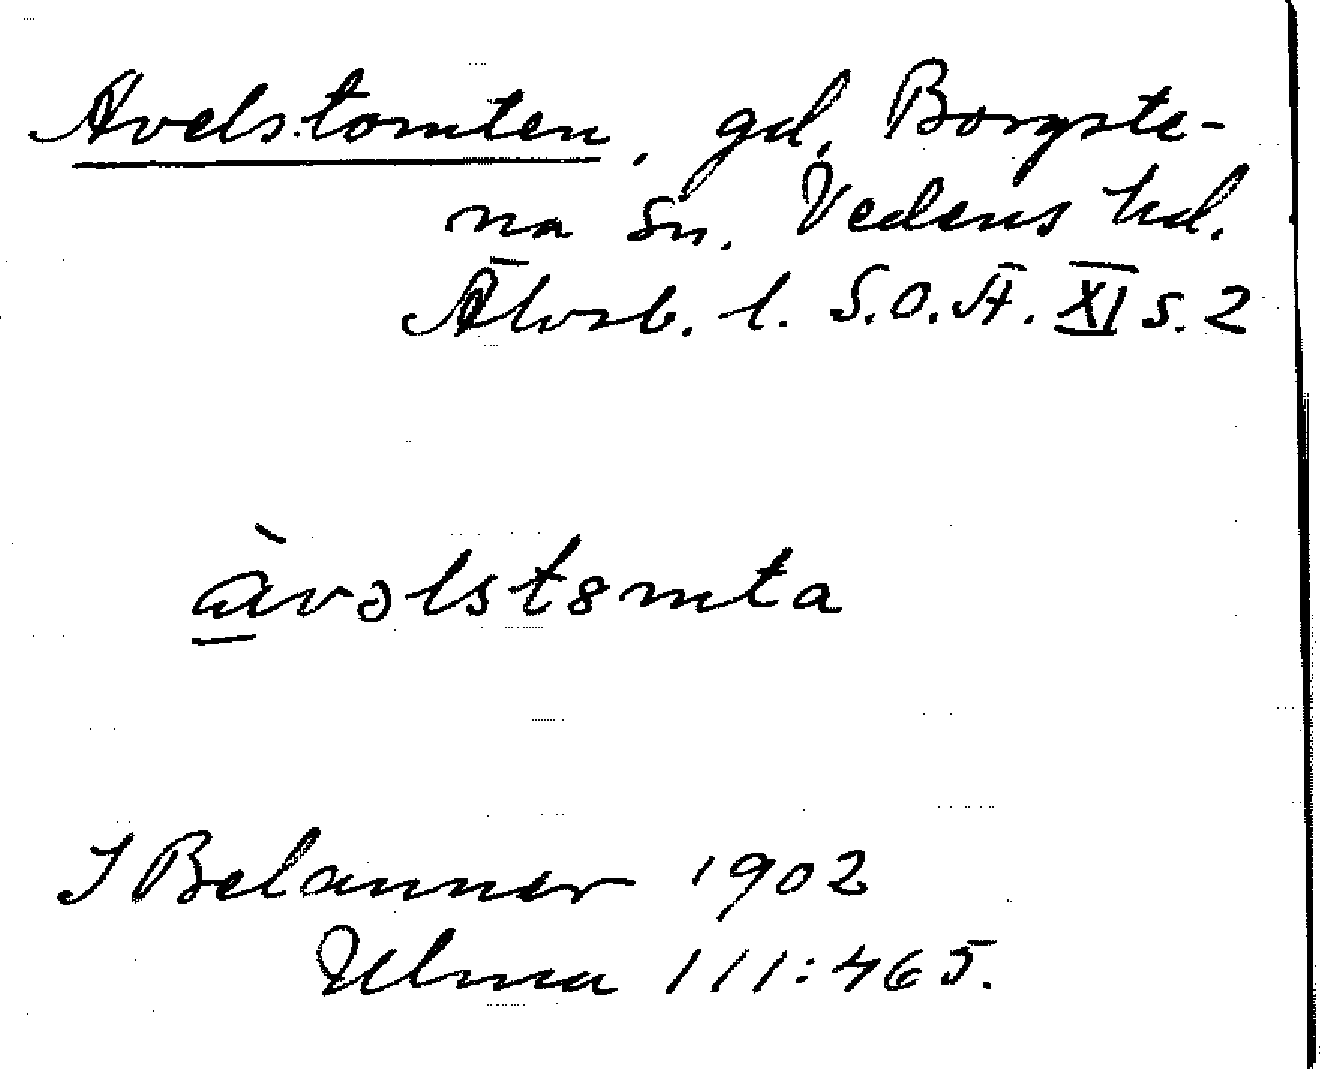 Avelstomten, gd, Borgste-
na sn. Vedens hd.
Älvsb. l. S.O.Ä. XI s. 2
àvəlstꝏmta
J Belanner 1902
Ulma 111:465.